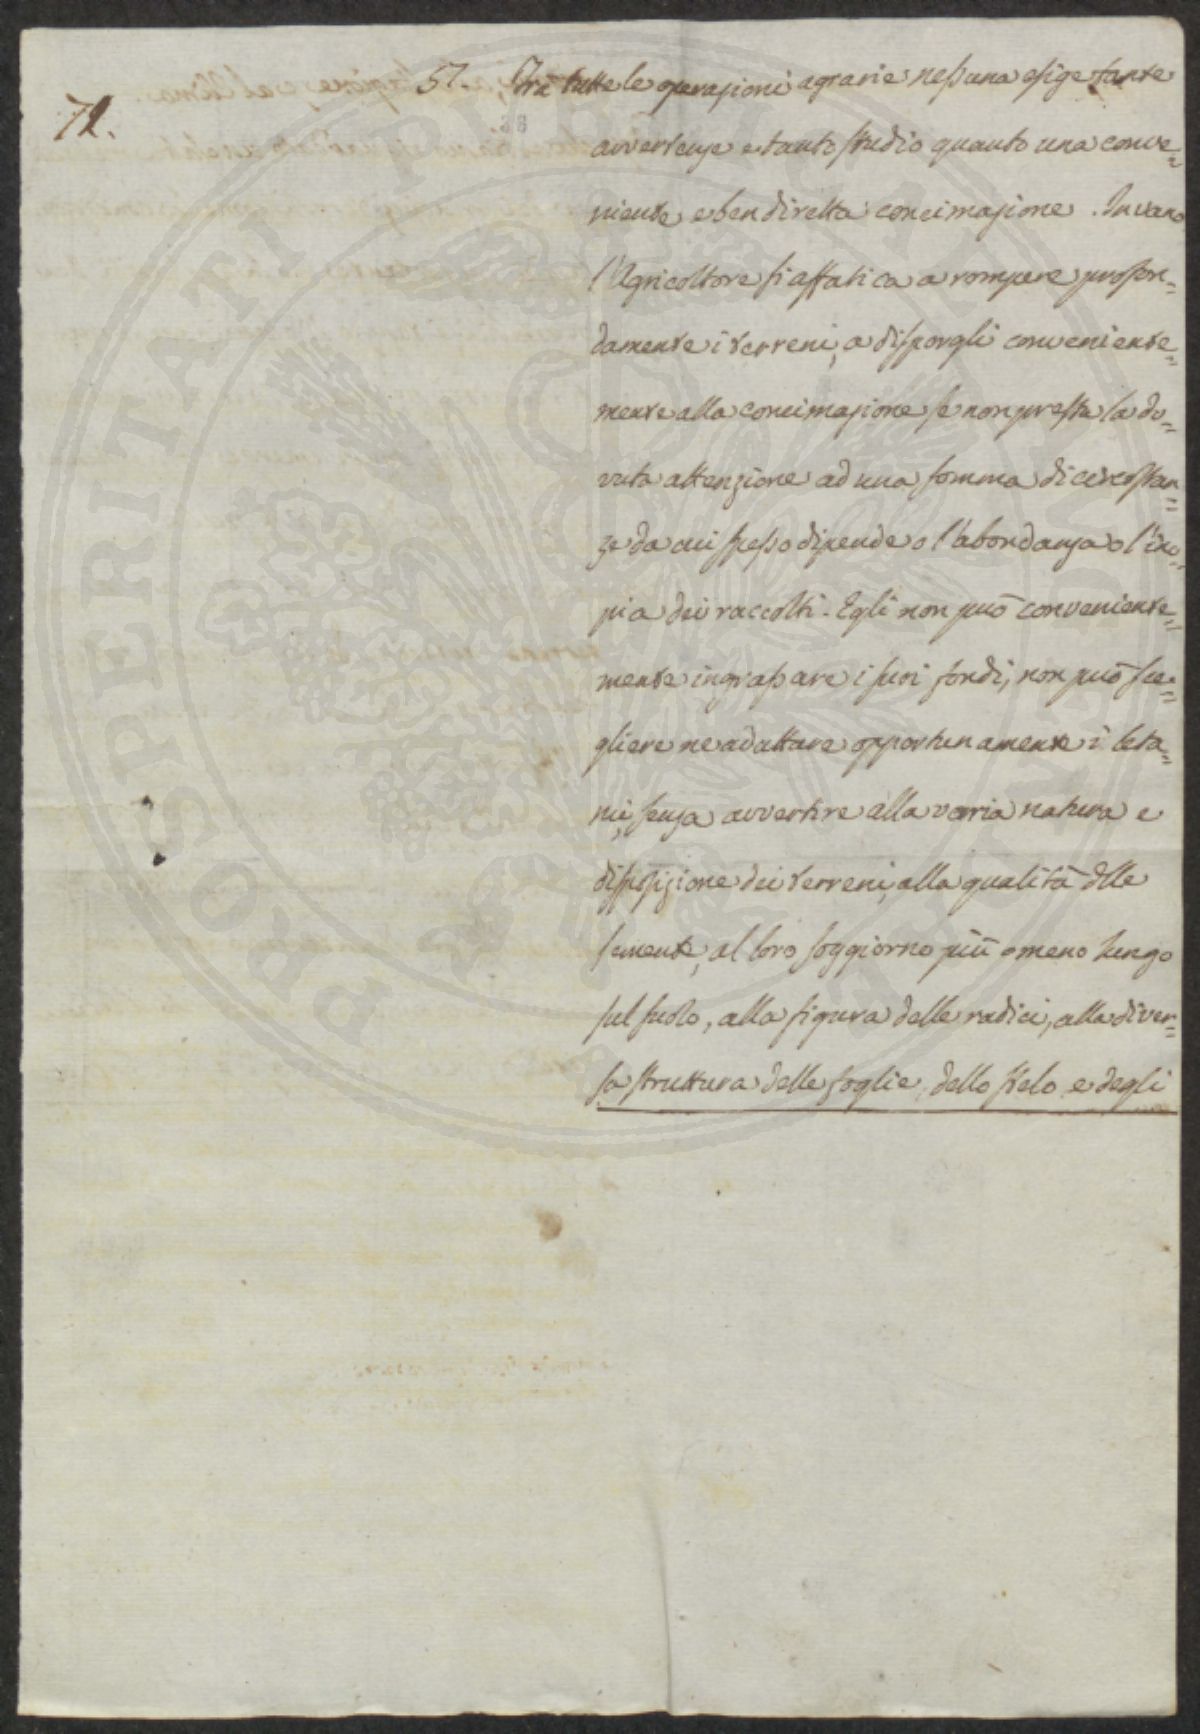 57. Tra tutte le operazioni agrarie nessuna esige tante
72.
38
avvertenze e tanto studio quanto una conve=
niente e ben diretta concimazione. Invano
l'Agricoltore si affatica a rompere profon=
damente i terreni, a disporgli conveniente=
mente alla concimazione se non presta la do=
vuta attenzione ad una somma di circostan=
ze da cui spesso dipende o l'abondanza o l'ino=
pia dei raccolti. Egli non può conveniente=
mente ingrassare i suoi fondi, non può sce=
gliere ne adattare opportunamente i leta=
mi, senza avvertire alla varia natura e
disposizione dei terreni, alla qualità dlle
semente, al loro soggiorno più o meno lungo
sul suolo, alla figura delle radici, alla diver=
sa struttura delle foglie, dello stelo e degli
PROSPERITATI PUBLICAE AUGENDAE